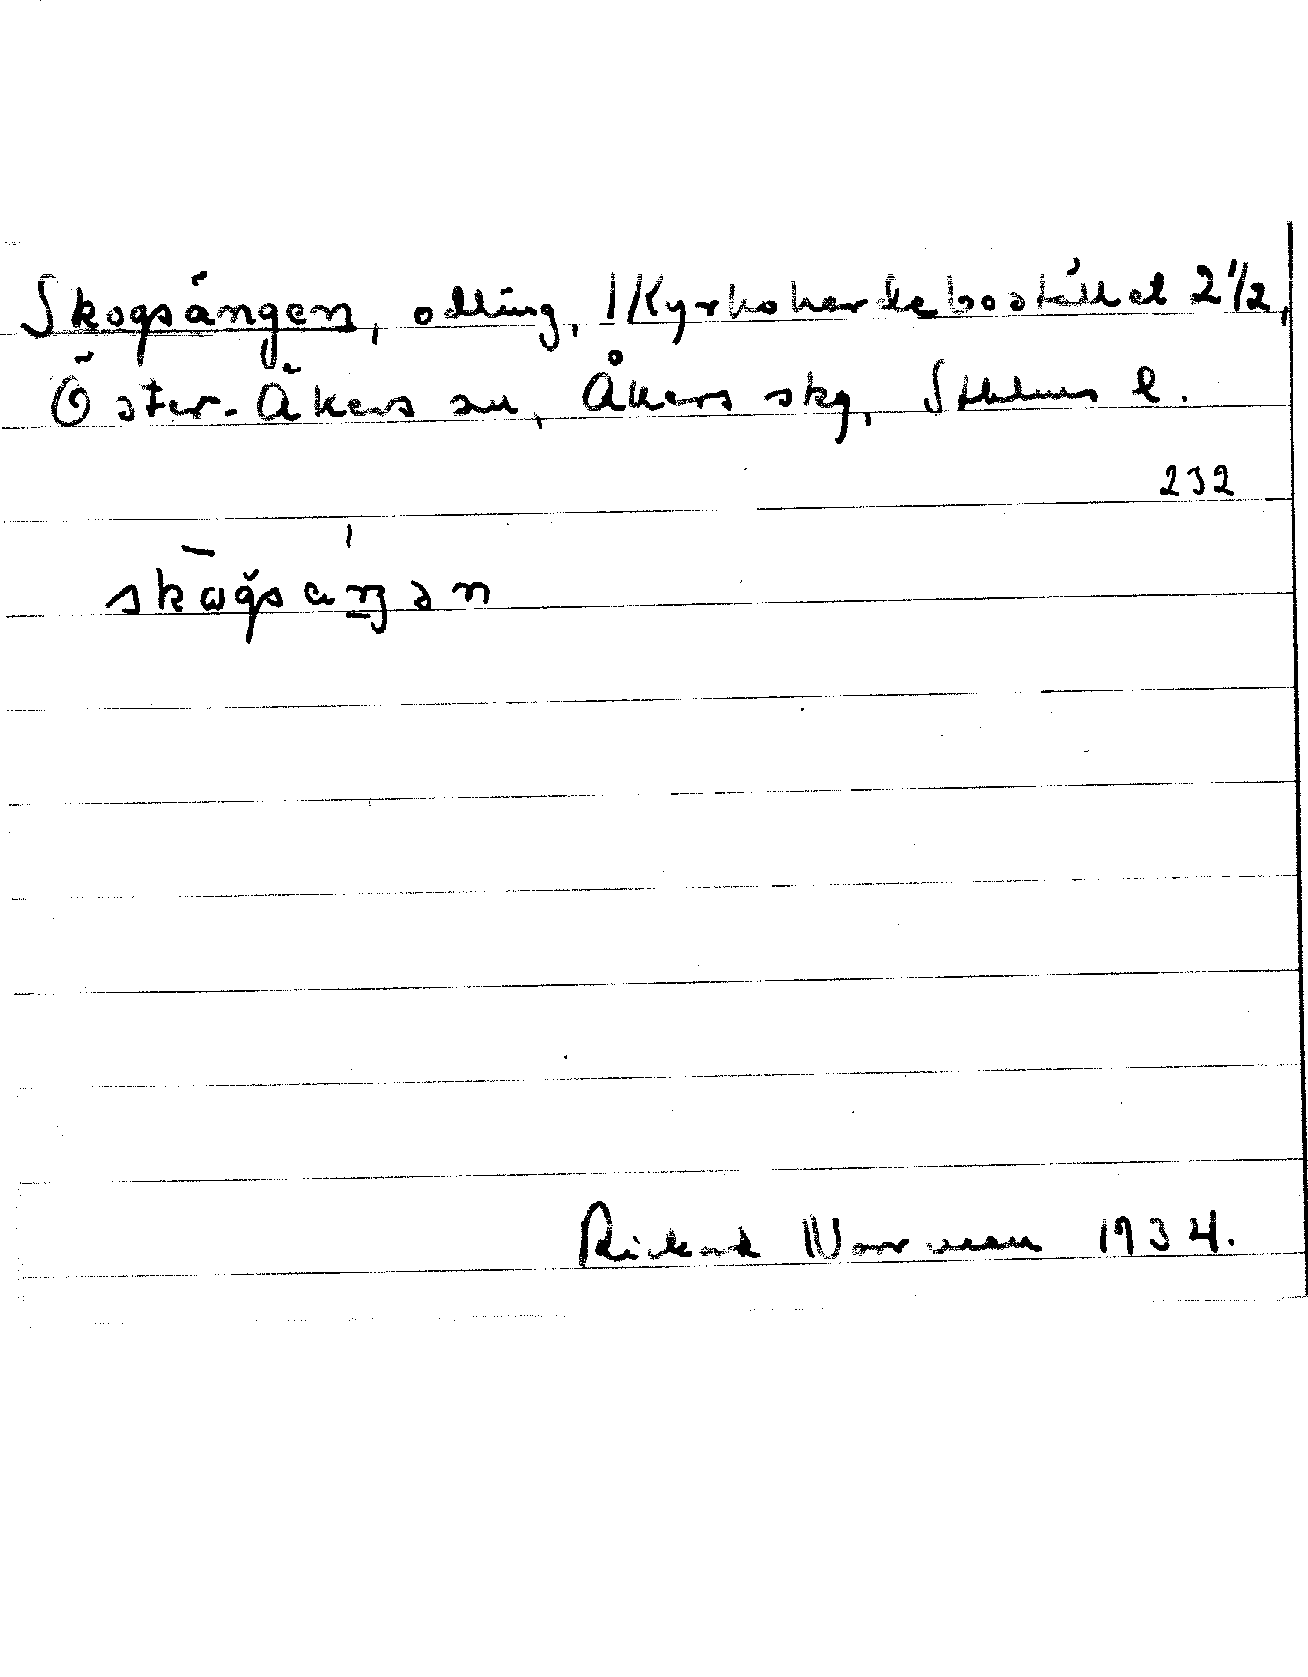 Skogsängen, odling, Kyrkoherdebostället 2 1/2,
Öster-Åkers sn, Åkers skg, Sthlms l.
232
skōgsäŋən
Rickard 1934.